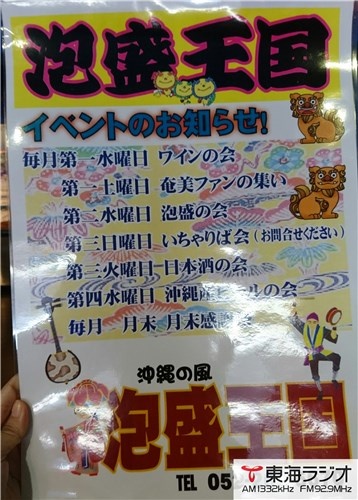 泡盛王国
イベントのお知らせ!
毎月第一水曜日 ワインの会
第一土曜日 奄美ファンの集い
第二水曜日 泡盛の会
第三日曜日 いちゃりば会(お問合せください)
第三火曜日 日本酒の会
第四水曜日 沖縄産ビールの会
毎月 月末 月末感謝
沖縄の風
泡盛王国
TEL 05
東海ラジオ
AM1332kHz FM92.9MHz